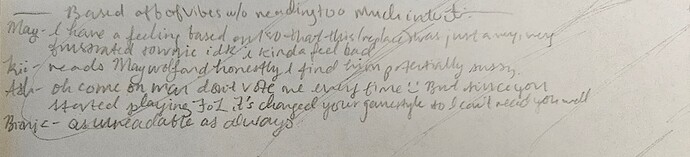 Based off of vibes w/o reading too much into it:
May - I have a feeling based on that this replace was just a very, very
frustrated townie idk i kinda feel bad
Kii - reads May wolf and honestly I find him potentially sussy.
Ash - oh come on man don't vote me every time :( But since you
started playing FoL it's changed your gamestyle so I can't read you well
- as unreadable as always